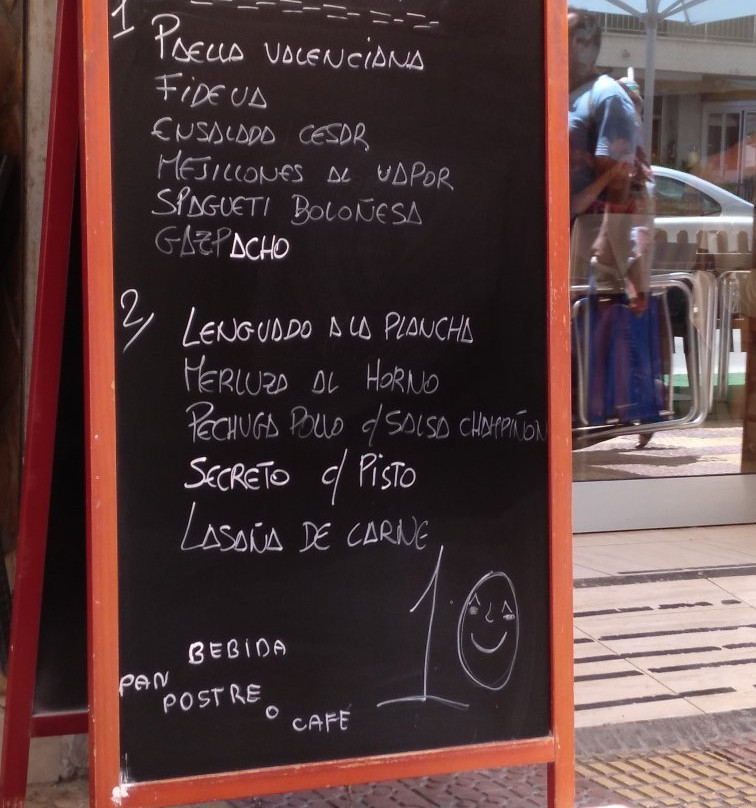 1
PAELLA VALENCIANA
FIDEUA
ENSALADA CESAR
MEJILLONES AL VAPOR
SPAGUETI BOLOÑESA
GAZPACHO
2/
LENGUADO A LA PLANCHA
MERLUZA AL HORNO
PECHUGA POLLO c/ SALSA CHAMPIÑON
SECRETO c/ PISTO
LASAÑA DE CARNE
10
BEBIDA
PAN
POSTRE O CAFÉ